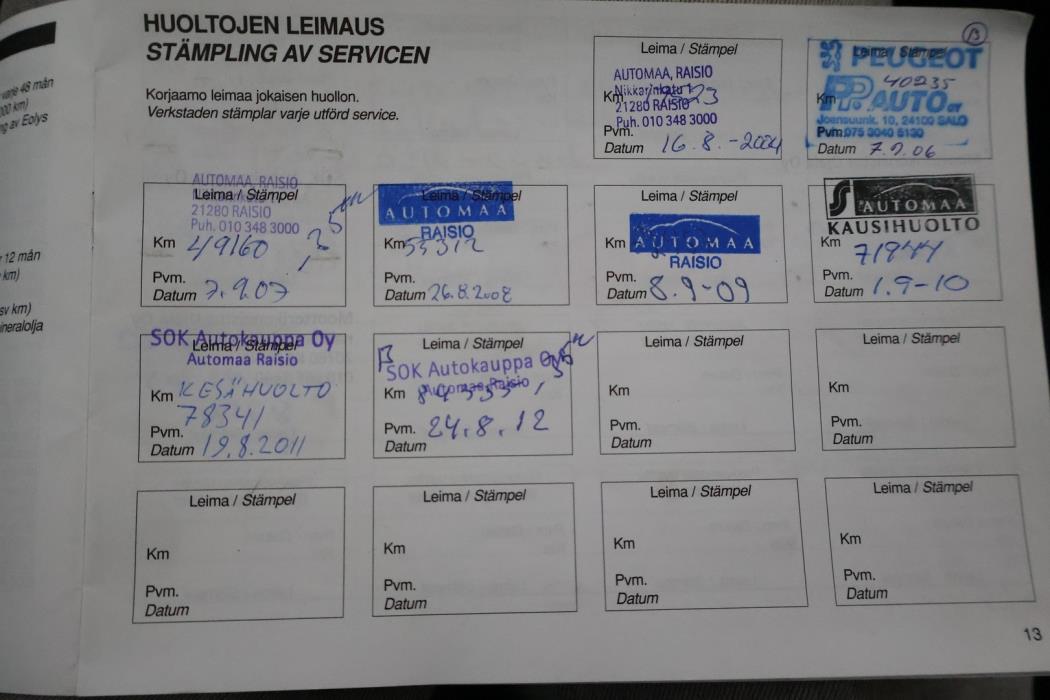 HUOLTOJEN LEIMAUS
STÄMPLING AV SERVICEN
Korjaamo leimaa jokaisen huollon.
Verkstaden stämplar varje utförd service.
varje 48 mån
000 km)
ng av Eolys
12 mån
km)
sv km)
ineralolja
Leima / Stämpel
AUTOMAA, RAISIO
Km
21280 RAISIO
Puh. 010 348 3000
Pvm.
Datum 16.8.-2004
B
Leima / Stämpel
PEUGEOT
40235
Km PP AUTO OY
Joensuunk. 10, 24100 SALO
Pvm. 075 3040 5130
Datum 7.9.06
AUTOMAA, RAISIO
Leima / Stämpel
21280 RAISIO
Puh. 010 348 3000
Km 49160
Pvm.
Datum 7.9.07
Leima / Stämpel
AUTOMAA
RAISIO
Km 55312
Pvm.
Datum 26.8.2008
Leima / Stämpel
Km AUTOMAA
RAISIO
Pvm.
Datum 8.9-09
AUTOMAA
KAUSIHUOLTO
Km 71944
Pvm.
Datum 1.9-10
SOK Autokauppa Oy
Leima / Stämpel
Automaa Raisio
Km KESÄHUOLTO
78341
Pvm.
Datum 19.8.2011
Leima / Stämpel
SOK Autokauppa Oy
Automaa Raisio
Km
Pvm. 24.8.12
Datum
Leima / Stämpel
Km
Pvm.
Datum
Leima / Stämpel
Km
Pvm.
Datum
Leima / Stämpel
Km
Pvm.
Datum
Leima / Stämpel
Km
Pvm.
Datum
Leima / Stämpel
Km
Pvm.
Datum
Leima / Stämpel
Km
Pvm.
Datum
13